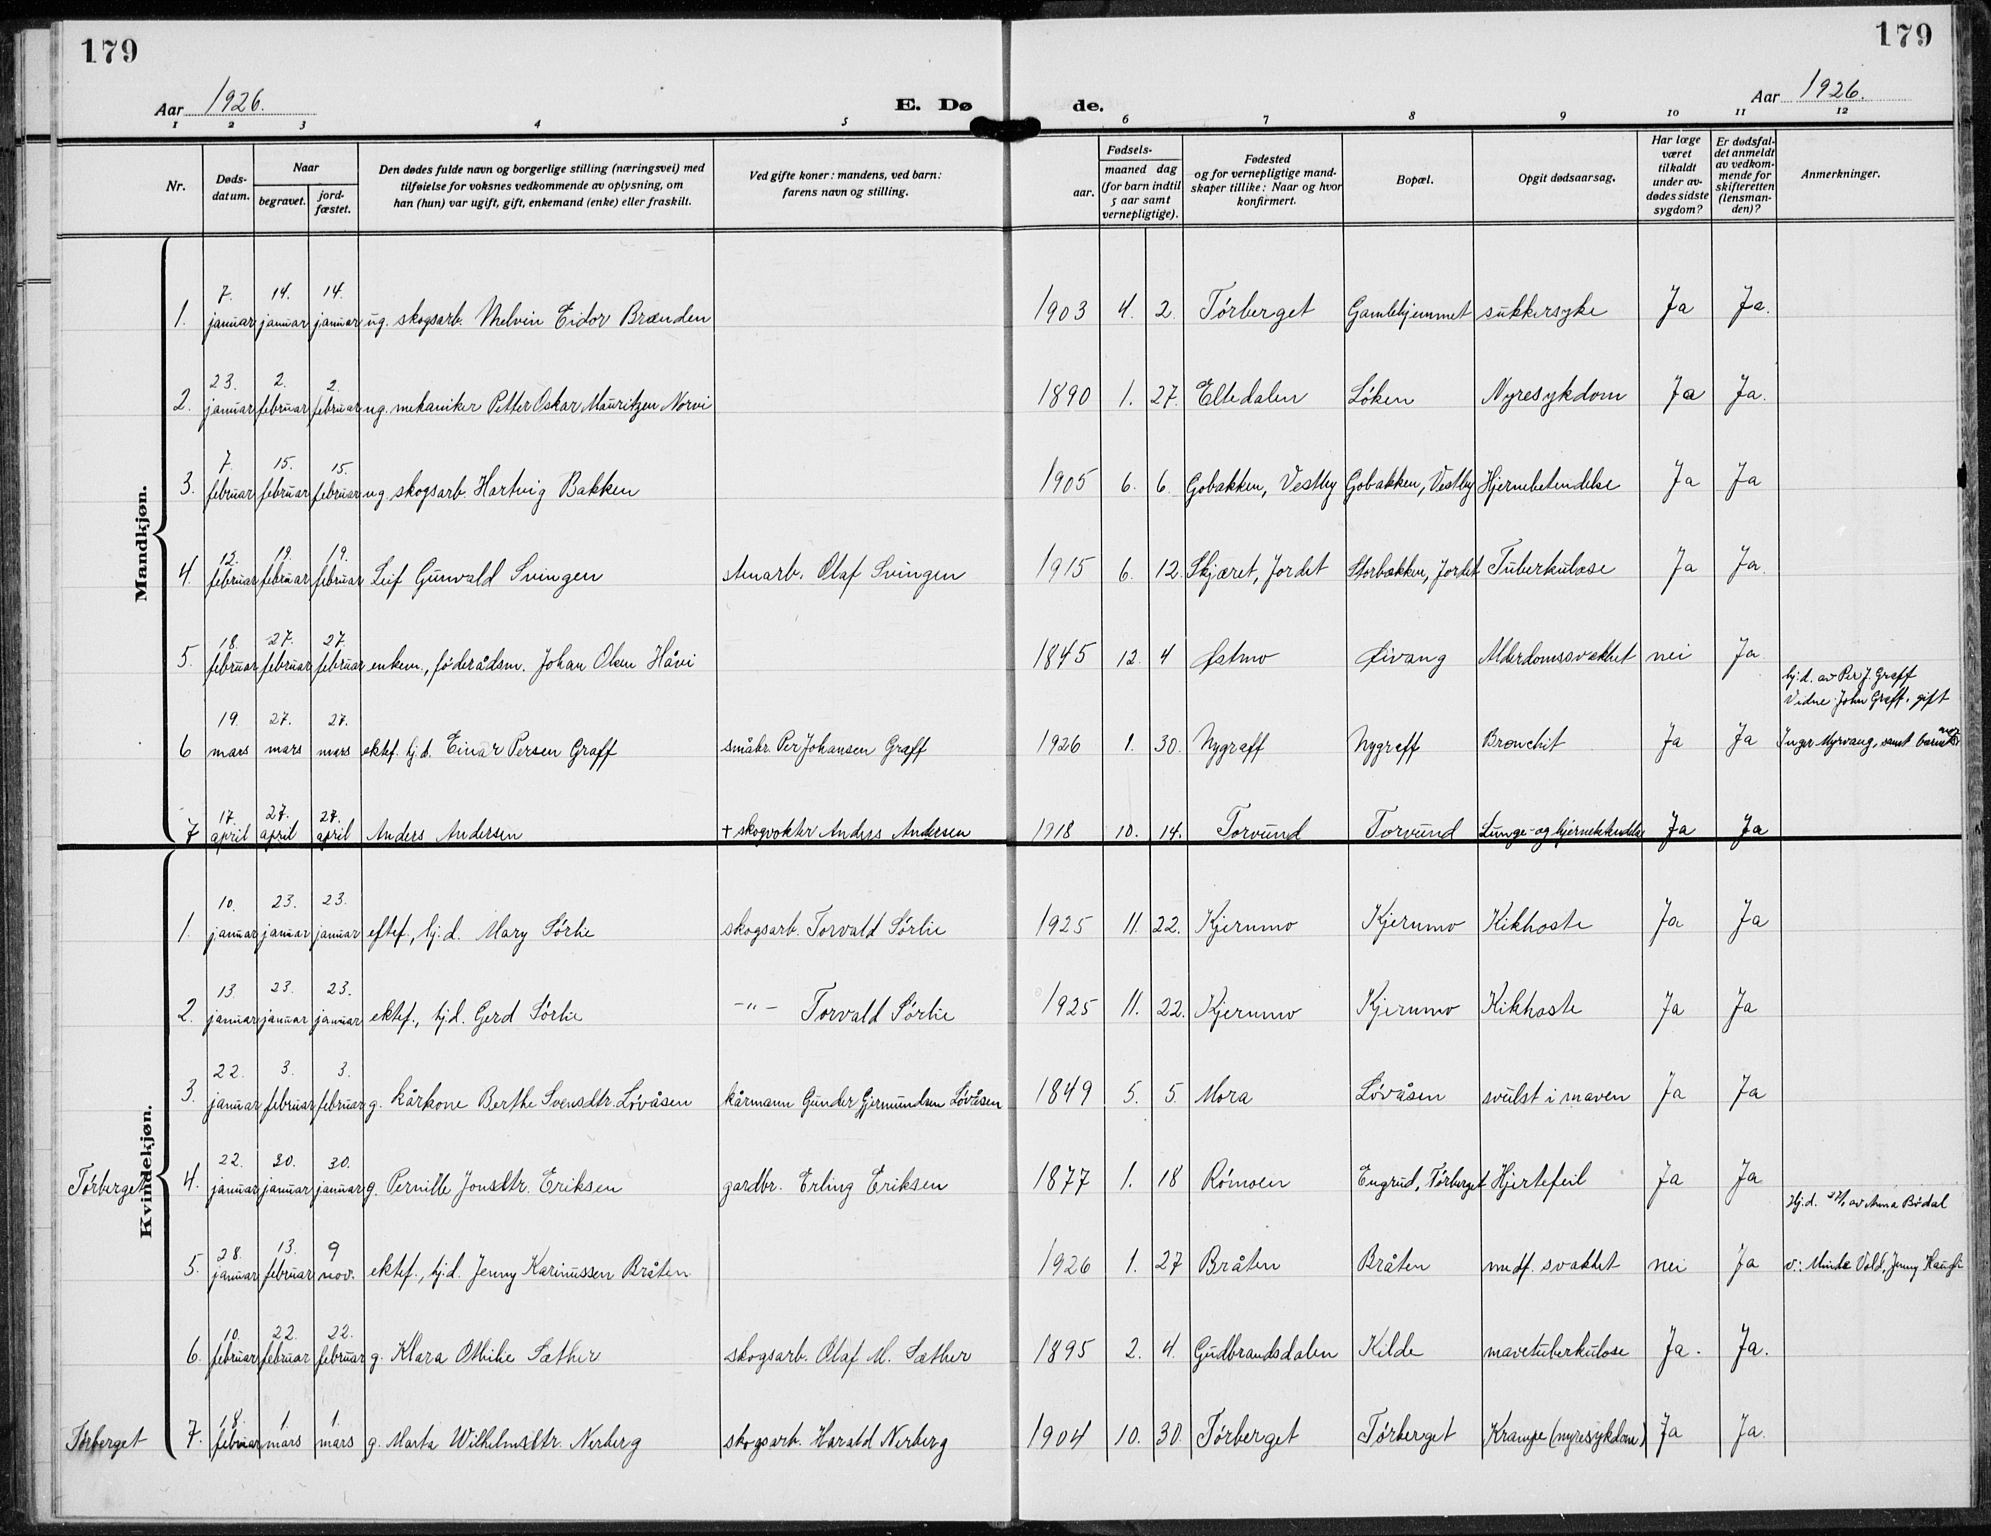 179
179
Aar 1926.
E. Dø
de.
Aar 1926.
1 2 3 4 5 6 7 8 9 10 11 12
Nr.
Døds-
datum.
Naar
begravet.
jord-
fæstet.
Den dødes fulde navn og borgerlige stilling (næringsvei) med
tilføielse for voksnes vedkommende av oplysning, om
han (hun) var ugift, gift, enkemand (enke) eller fraskilt.
Ved gifte koner: mandens, ved barn:
farens navn og stilling.
Fødsels-
aar.
maaned dag
(for barn indtil
5 aar samt
vernepligtige).
Fødested
og for vernepligtige mand-
skaper tillike: Naar og hvor
konfirmert.
Bopæl.
Opgit dødsaarsag.
Har læge
været
tilkaldt
under av-
dødes sidste
sygdom?
Er dødsfal-
det anmeldt
av vedkom-
mende for
skifteretten
(lensman-
den)?
Anmerkninger.
Mandkjøn.
7. 14. 14.
1. januar januar januar ug. skogsarb. Melvin Eidor Brænden 1903 4. 2. Tørberget Gamlehjemmet sukkersyke Ja Ja.
23. 2. 2.
2. januar februar februar ug. mekaniker Petter Oskar Mauritzen Norvi 1890 1. 27. Eltedalen Løken Nyresykdom Ja Ja.
7. 15. 15.
3. februar februar februar ug. skogsarb. Hartvig Bakken 1905 6. 6. Gobakken, Vestby Gobakken, Vestby Hjernebetendelse Ja Ja
12. 19. 19.
4. februar februar februar Leif Gunvald Svingen stenarb. Olaf Svingen 1915 6. 12. Skjæret, Jordet Storbakken, Jordet Tuberkulose Ja Ja.
18. 27. 27.
5. februar februar februar enkem., føderådsm. Johan Olsen Håvi 1845 12. 4 Østmo Øivang Alderdomssvakhet nei Ja
hj.d. av Per J. Graff
Vidne: John Graff, gift
19. 27. 27.
6 mars mars mars ektef. hj.d. Einar Persen Graff småbr. Per Johansen Graff 1926 1. 30. Nygraff Nygraff Bronchit Ja Ja Inger Myrvang, samt barnets
17. 27. 27.
7 april april april Anders Andersen + skogvokter Anders Andersen 1918 10. 14. Torvund Torvund Lunge- og hjernebetendelse Ja Ja
Kvindekjøn.
10. 23. 23.
1. januar januar januar ektef., hj.d. Mary Sørlie skogsarb. Torvald Sørlie 1925 11. 22. Kjernmo Kjernmo Kikhoste Ja Ja
13. 23. 23.
2. januar januar januar ektef., hj.d. Gerd Sørlie -"- Torvald Sørlie 1925 11. 22. Kjernmo Kjernmo Kikhoste Ja Ja
22. 3. 3.
3. januar februar februar g. kårkone Berthe Svensdtr. Løvåsen kårmann Gunder Gjermundsen Løvåsen 1849 5. 5. Mora Løvåsen svulst i maven Ja Ja
22. 30. 30.
Tørberget 4. januar januar januar g. Pernille Jonsdtr. Eriksen gardbr. Erling Eriksen 1877 1. 18 Rømoen Engrud, Tørberget Hjertefeil Ja Ja
Hj.d. av Anna Bødal
28. 13. 9
5. januar februar nov. ektef., hj.d. Jenny Karinussen Bråten 1926 1. 27 Bråten Bråten medf. svakhet nei Ja v.: Minda Vold, Jenny
10. 22. 22.
6. februar februar februar g. Klara Othilie Sæther skogsarb. Olaf M. Sæther 1895 2. 4. Gudbrandsdalen Kilde mavetuberkulose Ja. Ja.
18. 1. 1.
Tørberget 7. februar mars mars g. Marta Wilhelmsdtr. Nerberg skogsarb. Harald Nerberg 1904 10. 30 Tørberget Tørberget Krampe (nyresykdom) Ja Ja.